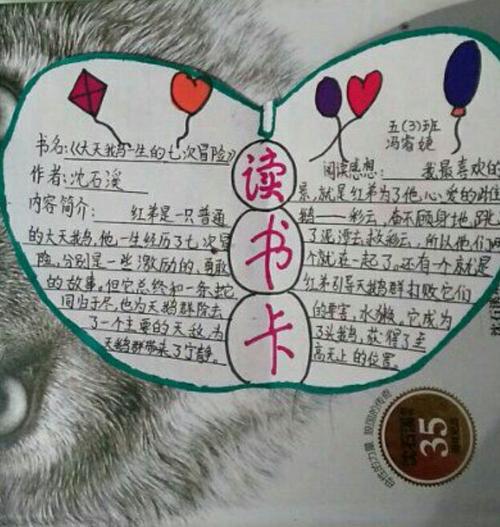 书名:《大天鹅一生的七次冒险》
作者:沈石溪
内容简介: 红弟是一只普通
的大天鹅,他一生经历了七次冒
险,分别是一些激励的,勇敢
的故事,但它总终和一条蛇
同归于尽,也为天鹅群除去
了一个主要的天敌,为
天鹅群带来了宁静。
读
书
卡
五(3)班
冯睿婕
阅读感想: 我最喜欢的
景,就是红弟为了他心爱的雌
鹅——彩云,奋不顾身地跳
了泥潭去救彩云,所以他们两
个就在一起了,还有一个就是
红弟引导天鹅群打败它们
的要害,水獭,它成为
了头鹅,获得了至
高无上的位置。
35
母性的力量 狼国的传奇